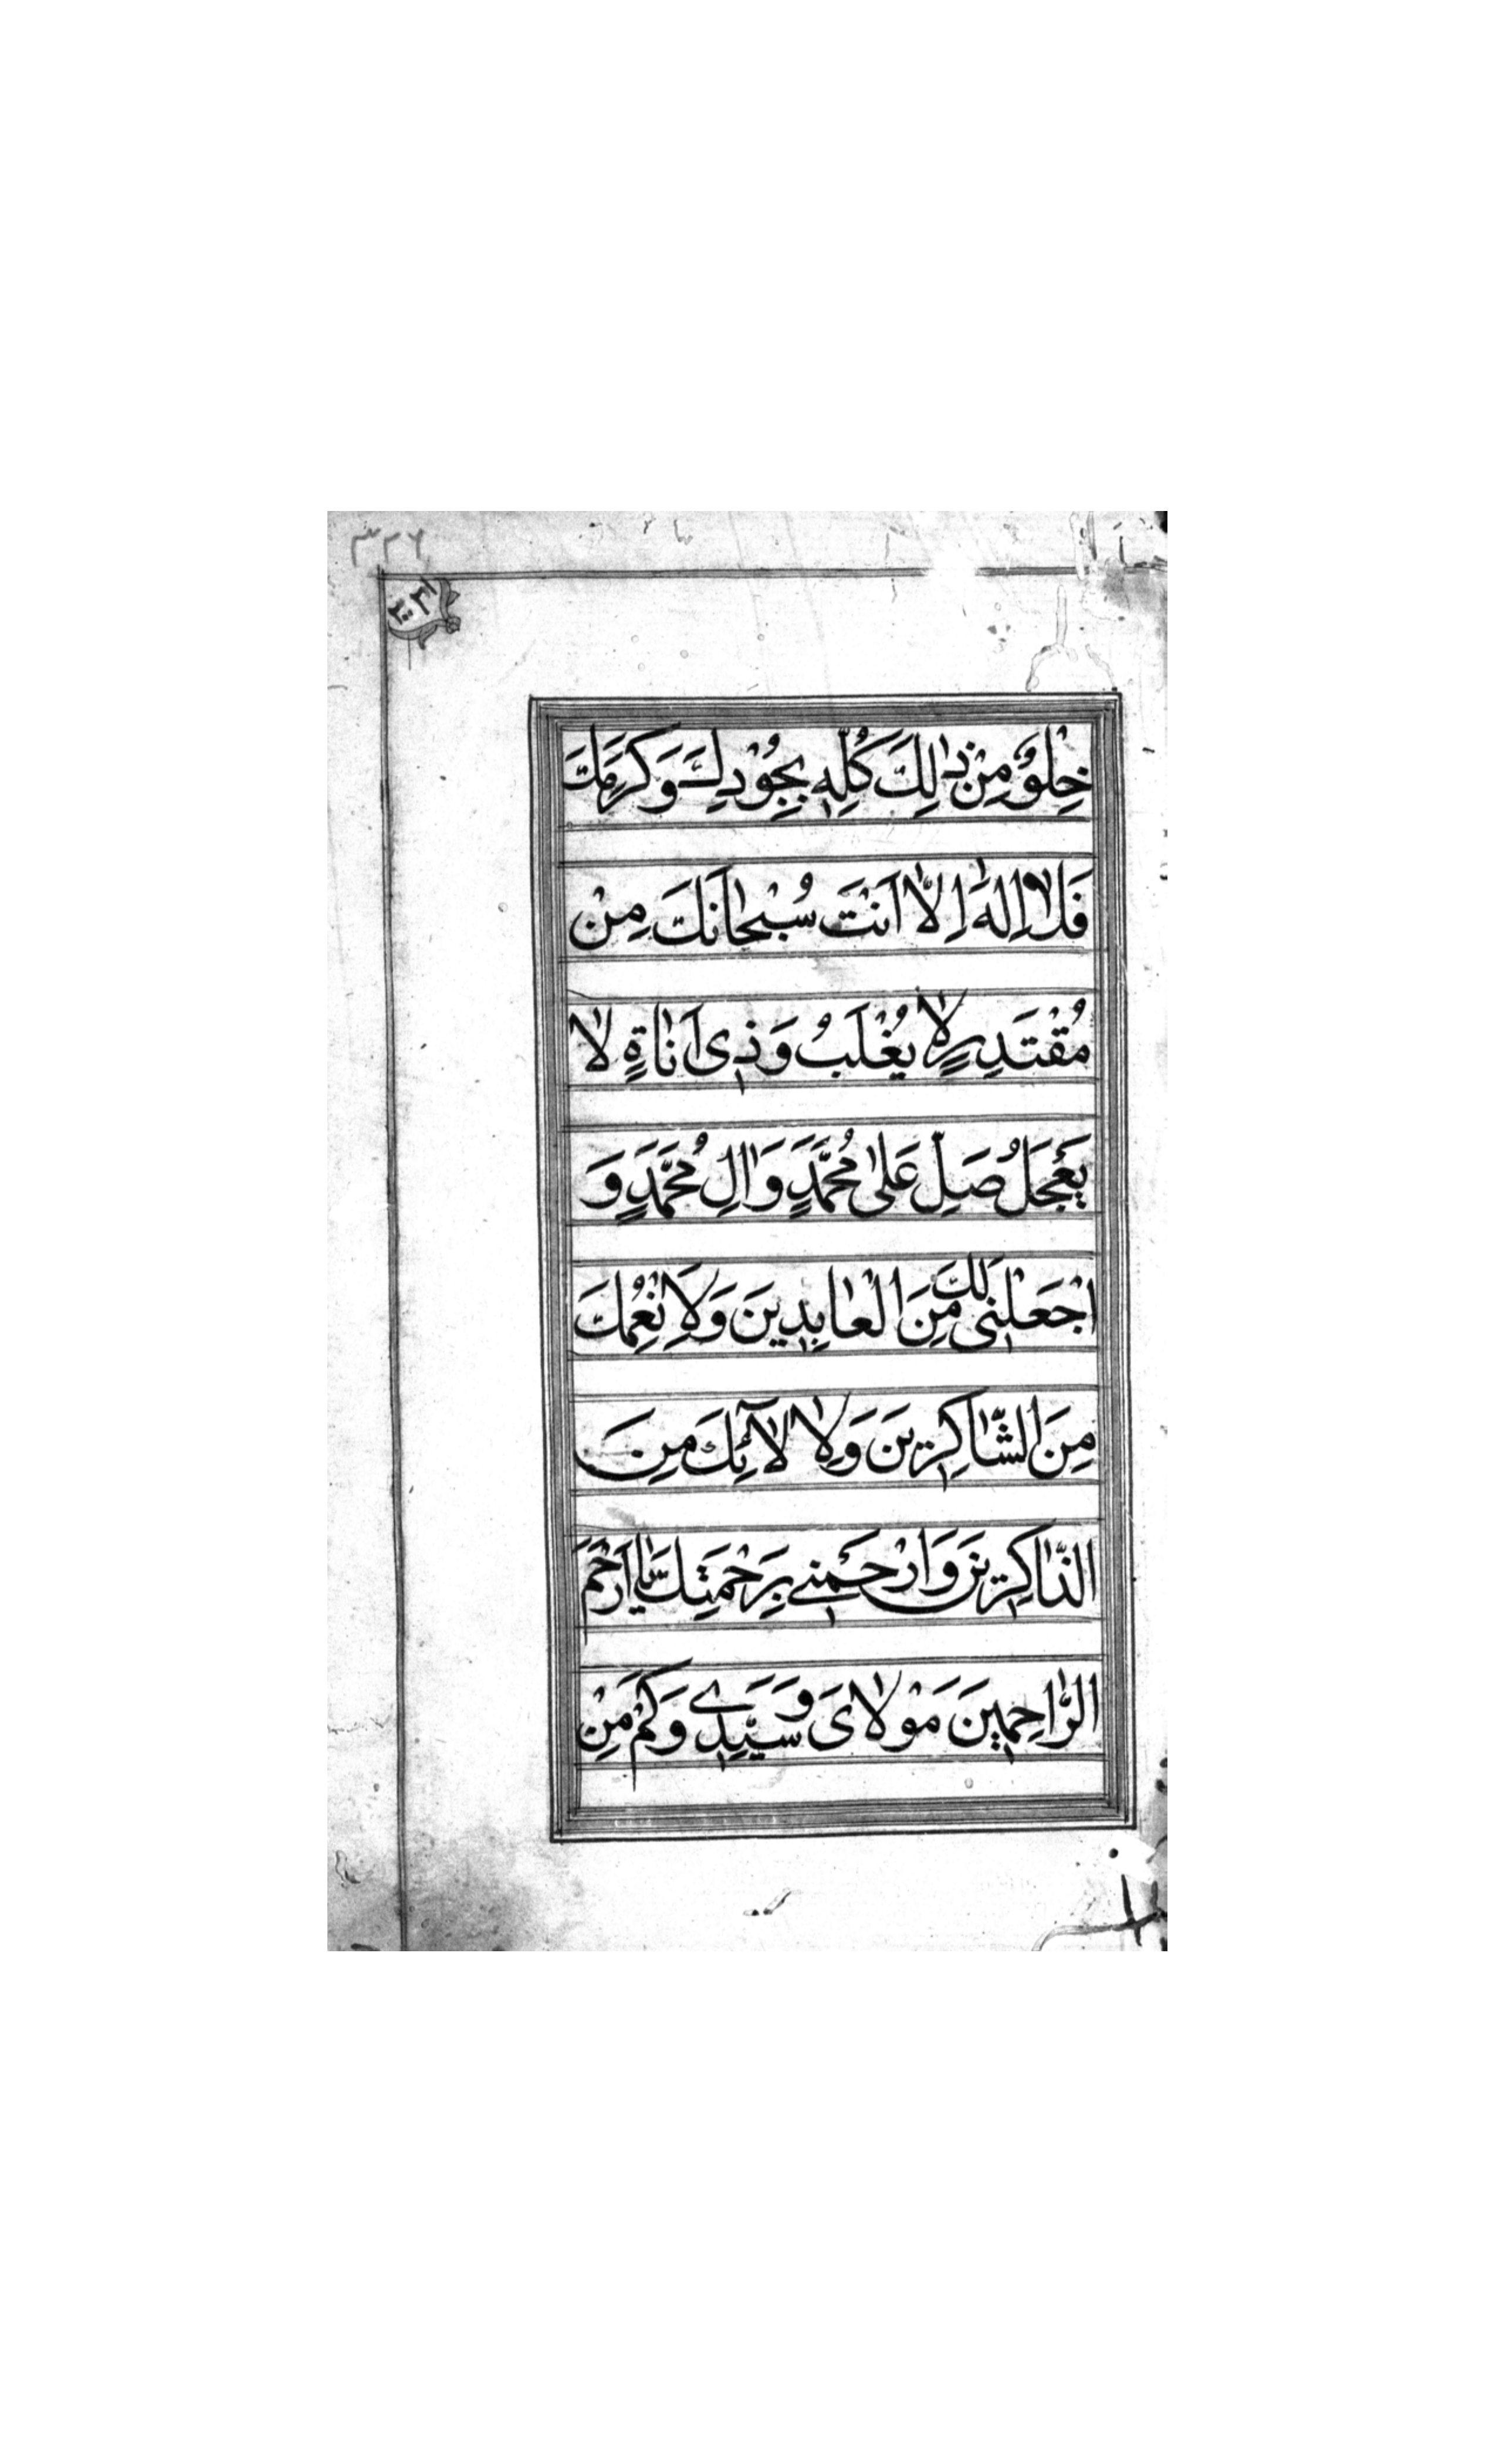 ۳۲۶
خِلْوٌ مِنْ ذٰلِكَ كُلِّهِ بِجُوْدِكَ وَكَرَمِكَ
فَلَا اِلٰهَ اِلَّا اَنْتَ سُبْحٰانَكَ مِنْ
مُقْتَدِرٍ لٰا يُغْلَبُ وَذِي اَنٰاةٍ لٰا
يَعْجَلُ صَلِّ عَلٰى مُحَمَّدٍ وَاٰلِ مُحَمَّدٍ وَ
اجْعَلْنِي لَكَ مِنَ الْعٰابِدِينَ وَلِاَنْعُمِكَ
مِنَ الشّٰاكِرِينَ وَلِاٰلٰآئِكَ مِنَ
الذّٰاكِرِينَ وَارْحَمْنِي بِرَحْمَتِكَ يٰا اَرْحَمَ
الرّٰاحِمِينَ مَوْلٰايَ وَسَيِّدِي وَكَمْ مِنْ